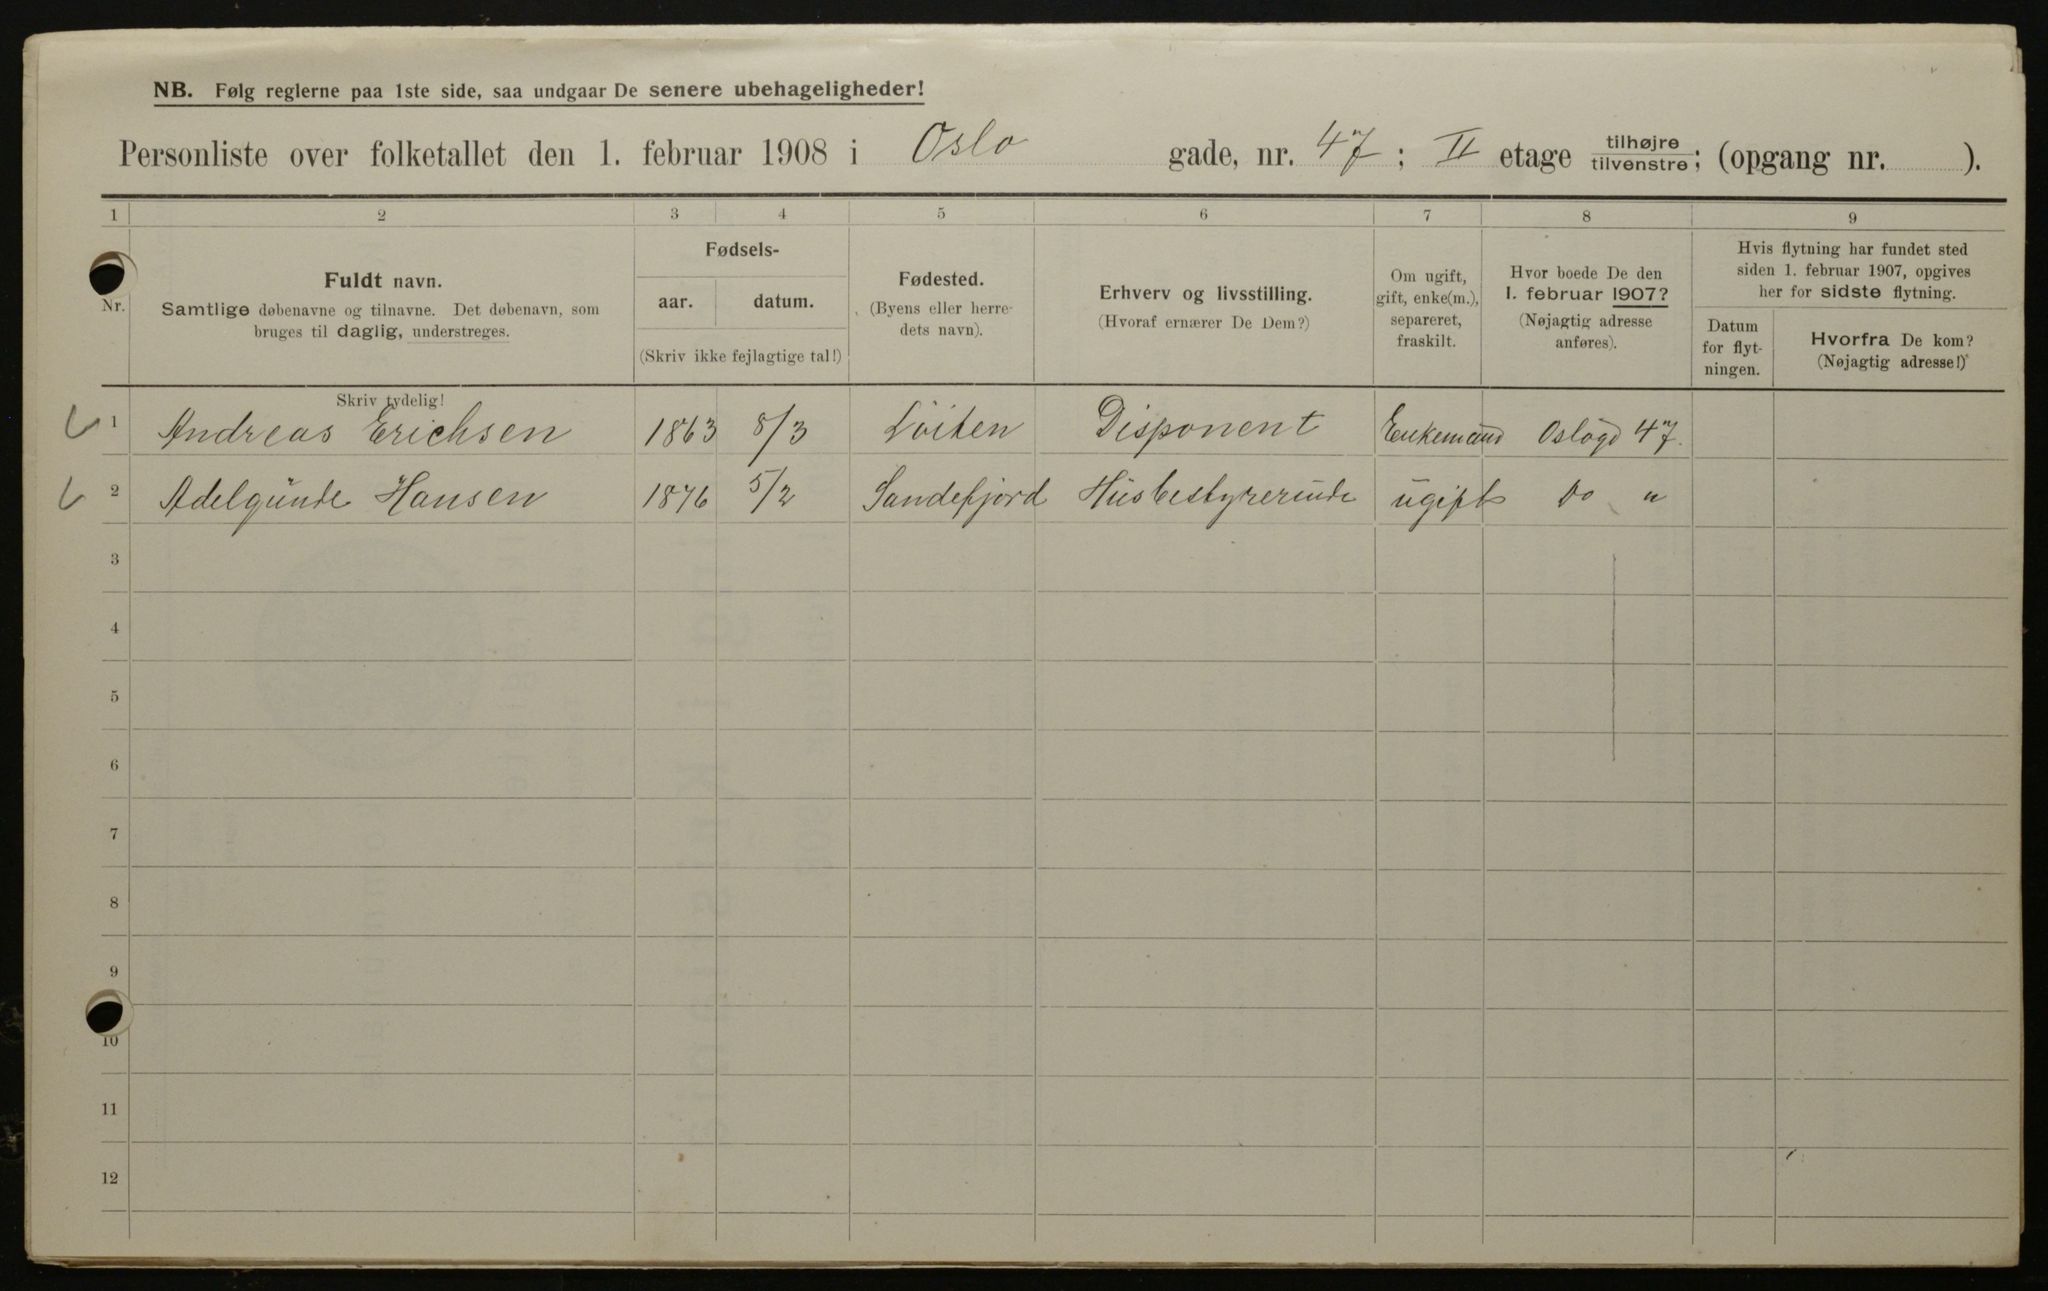 NB. Følg reglerne paa 1ste side, saa undgaar De senere ubehageligheder!
Personliste over folketallet den 1. februar 1908 i Oslo gade, nr. 47; II etage tilhøjre/tilvenstre; (opgang nr. ).
1 2 3 4 5 6 7 8 9
Nr.
Fuldt navn.
Samtlige døbenavne og tilnavne. Det døbenavn, som
bruges til daglig, understreges.
Skriv tydelig!
Fødsels-
aar. datum.
(Skriv ikke fejlagtige tal!)
Fødested.
(Byens eller herre-
dets navn).
Erhverv og livsstilling.
(Hvoraf ernærer De Dem?)
Om ugift,
gift, enke(m.),
separeret,
fraskilt.
Hvor boede De den
1. februar 1907?
(Nøjagtig adresse
anføres).
Hvis flytning har fundet sted
siden 1. februar 1907, opgives
her for sidste flytning.
Datum
for flyt-
ningen.
Hvorfra De kom?
(Nøjagtig adresse!)
1 Andreas Erichsen 1863 8/3 Löiten Disponent Enkemand Oslogd 47.
2 Adelgunde Hansen 1876 5/2 Sandefjord Husbestyrerinde ugift Do "
3
4
5
6
7
8
9
10
11
12